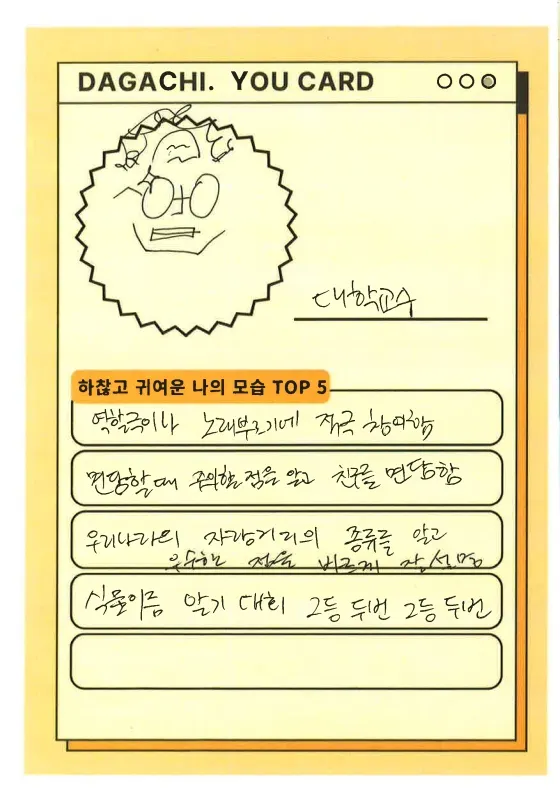 DAGACHI. YOU CARD
대학교수
하찮고 귀여운 나의 모습 TOP 5
역할극이나 노래부르기에 적극 참여함
면담할때 주의할점을 알고 친구를 면담함
우리나라의 자랑거리의 종류를 알고
우수한 점을 바르게 잘 설명
식물이름 알기 대회 2등 두번 2등 두번